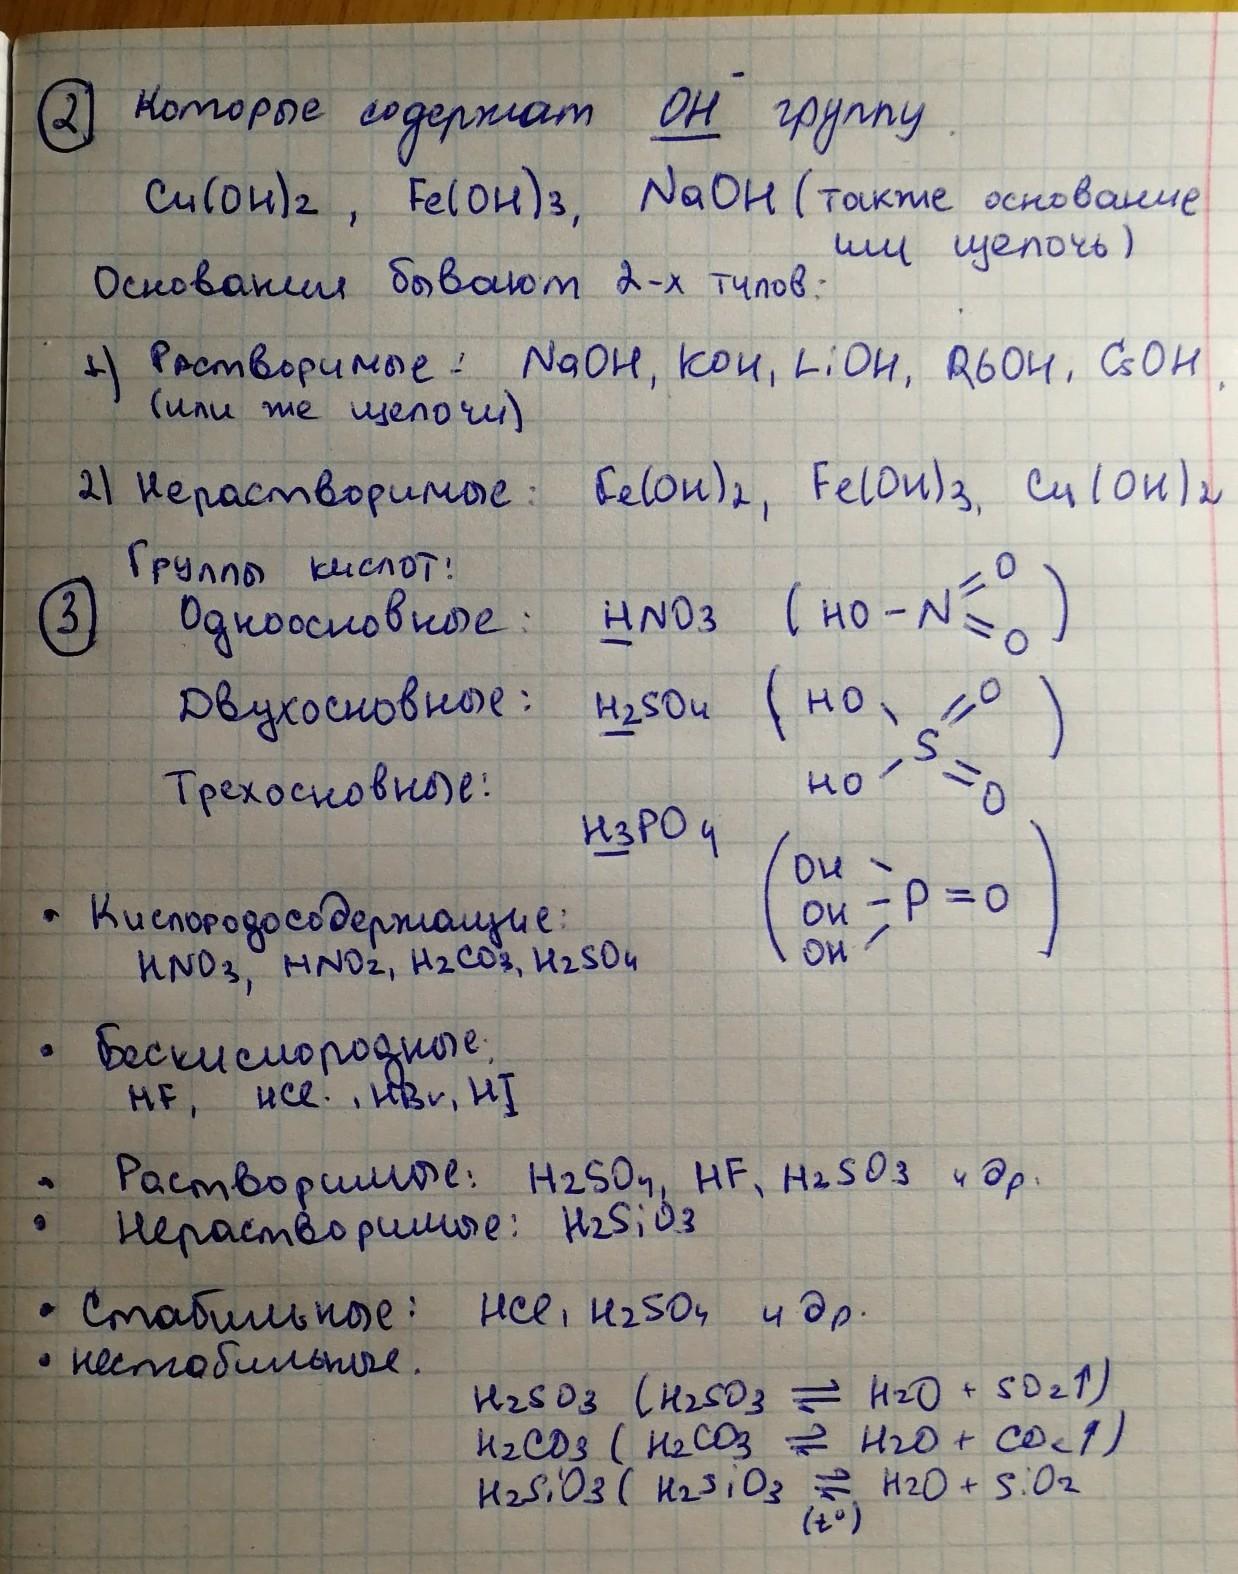 2 Которые содержат OH⁻ группу.
Cu(OH)2, Fe(OH)3, NaOH (также основание
или щелочь)
Основания бывают 2-х типов:
1) Растворимые: NaOH, KOH, LiOH, RbOH, CsOH,
(или же щелочи)
2) Нерастворимые: Fe(OH)2, Fe(OH)3, Cu(OH)2
Группы кислот:
3 Одноосновные: HNO3 (HO-N=O =O)
Двухосновные: H2SO4 (HO HO S=O =O)
Трехосновные:
H3PO4 (OH OH OH P=O)
• Кислородосодержащие:
HNO3, HNO2, H2CO3, H2SO4
• Бескислородные:
HF, HCl, HBr, HI
• Растворимые: H2SO4, HF, H2SO3 и др.
• Нерастворимые: H2SiO3
• Стабильные: HCl, H2SO4 и др.
• нестабильные.
H2SO3 (H2SO3 ⇌ H2O + SO2↑)
H2CO3 (H2CO3 ⇌ H2O + CO2↑)
H2SiO3 (H2SiO3 ⇌ H2O + SiO2
(t°)